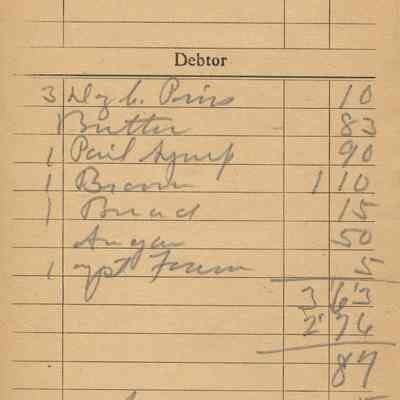 Debtor
3 Dz C. Pins 10
Butter 83
1 Pail Syrup 90
1 Broom 1 10
1 Bread 15
Sugar 50
1 5
3 63
2 76
87